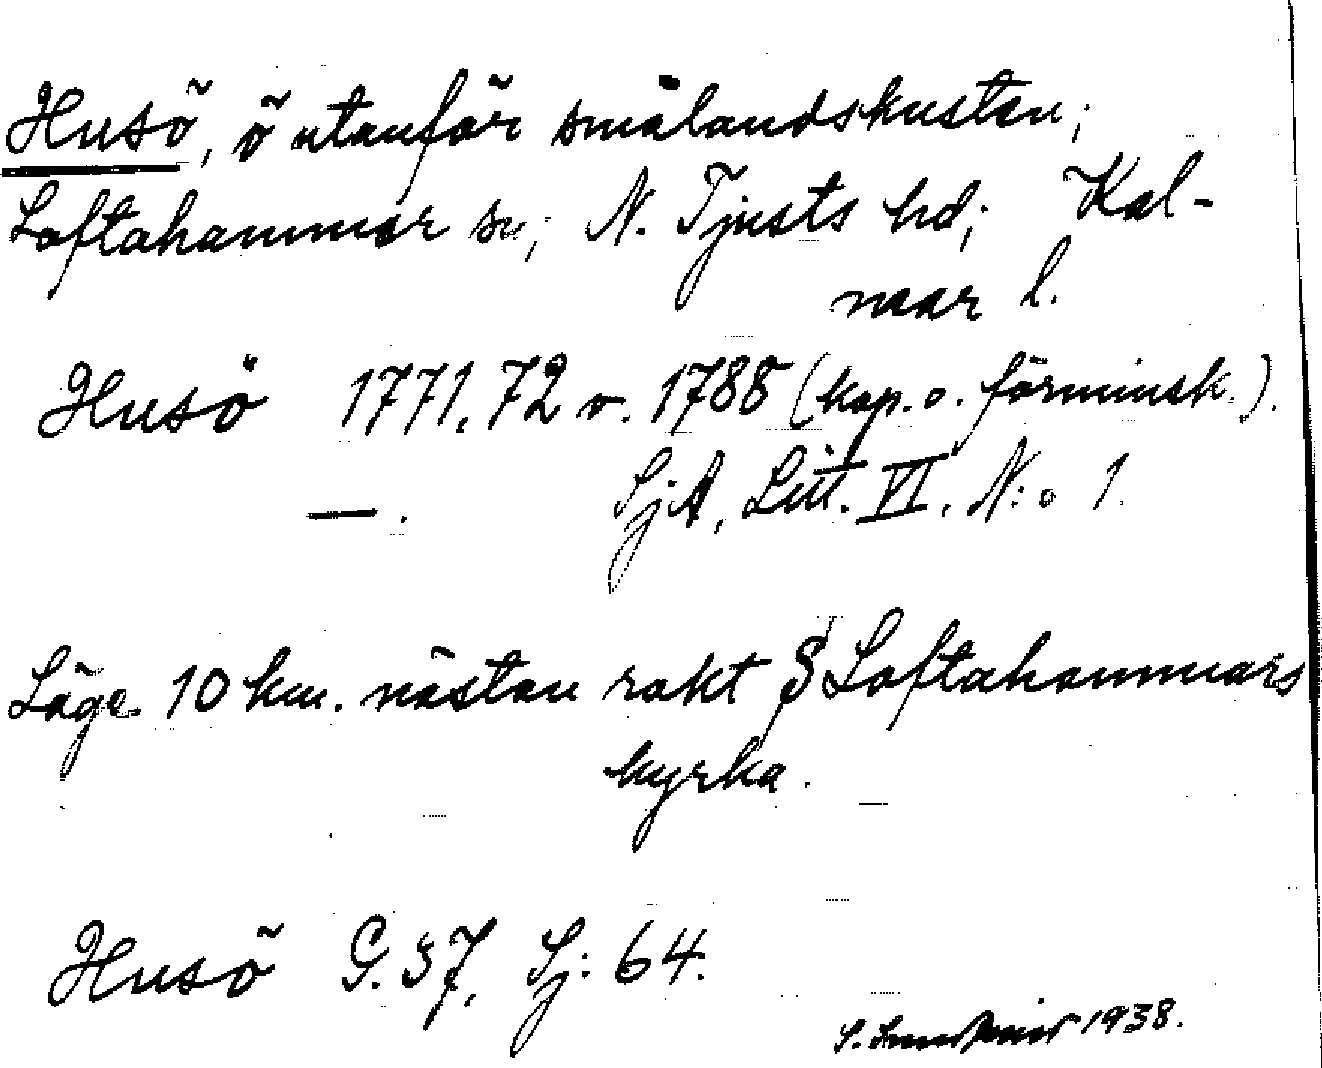 Husö, ö utanför smålandskusten;
Loftahammar sn; N. Tjusts hd; Kal-
mar l.
Husö 1771, 72 o. 1788 (kop. o. förminsk.).
—. SjA, Litt. VI, N:o 1.
Läge 10 km. nästan rakt S Loftahammars
kyrka.
Husö G. 37, Sj: 64.
S. 1938.